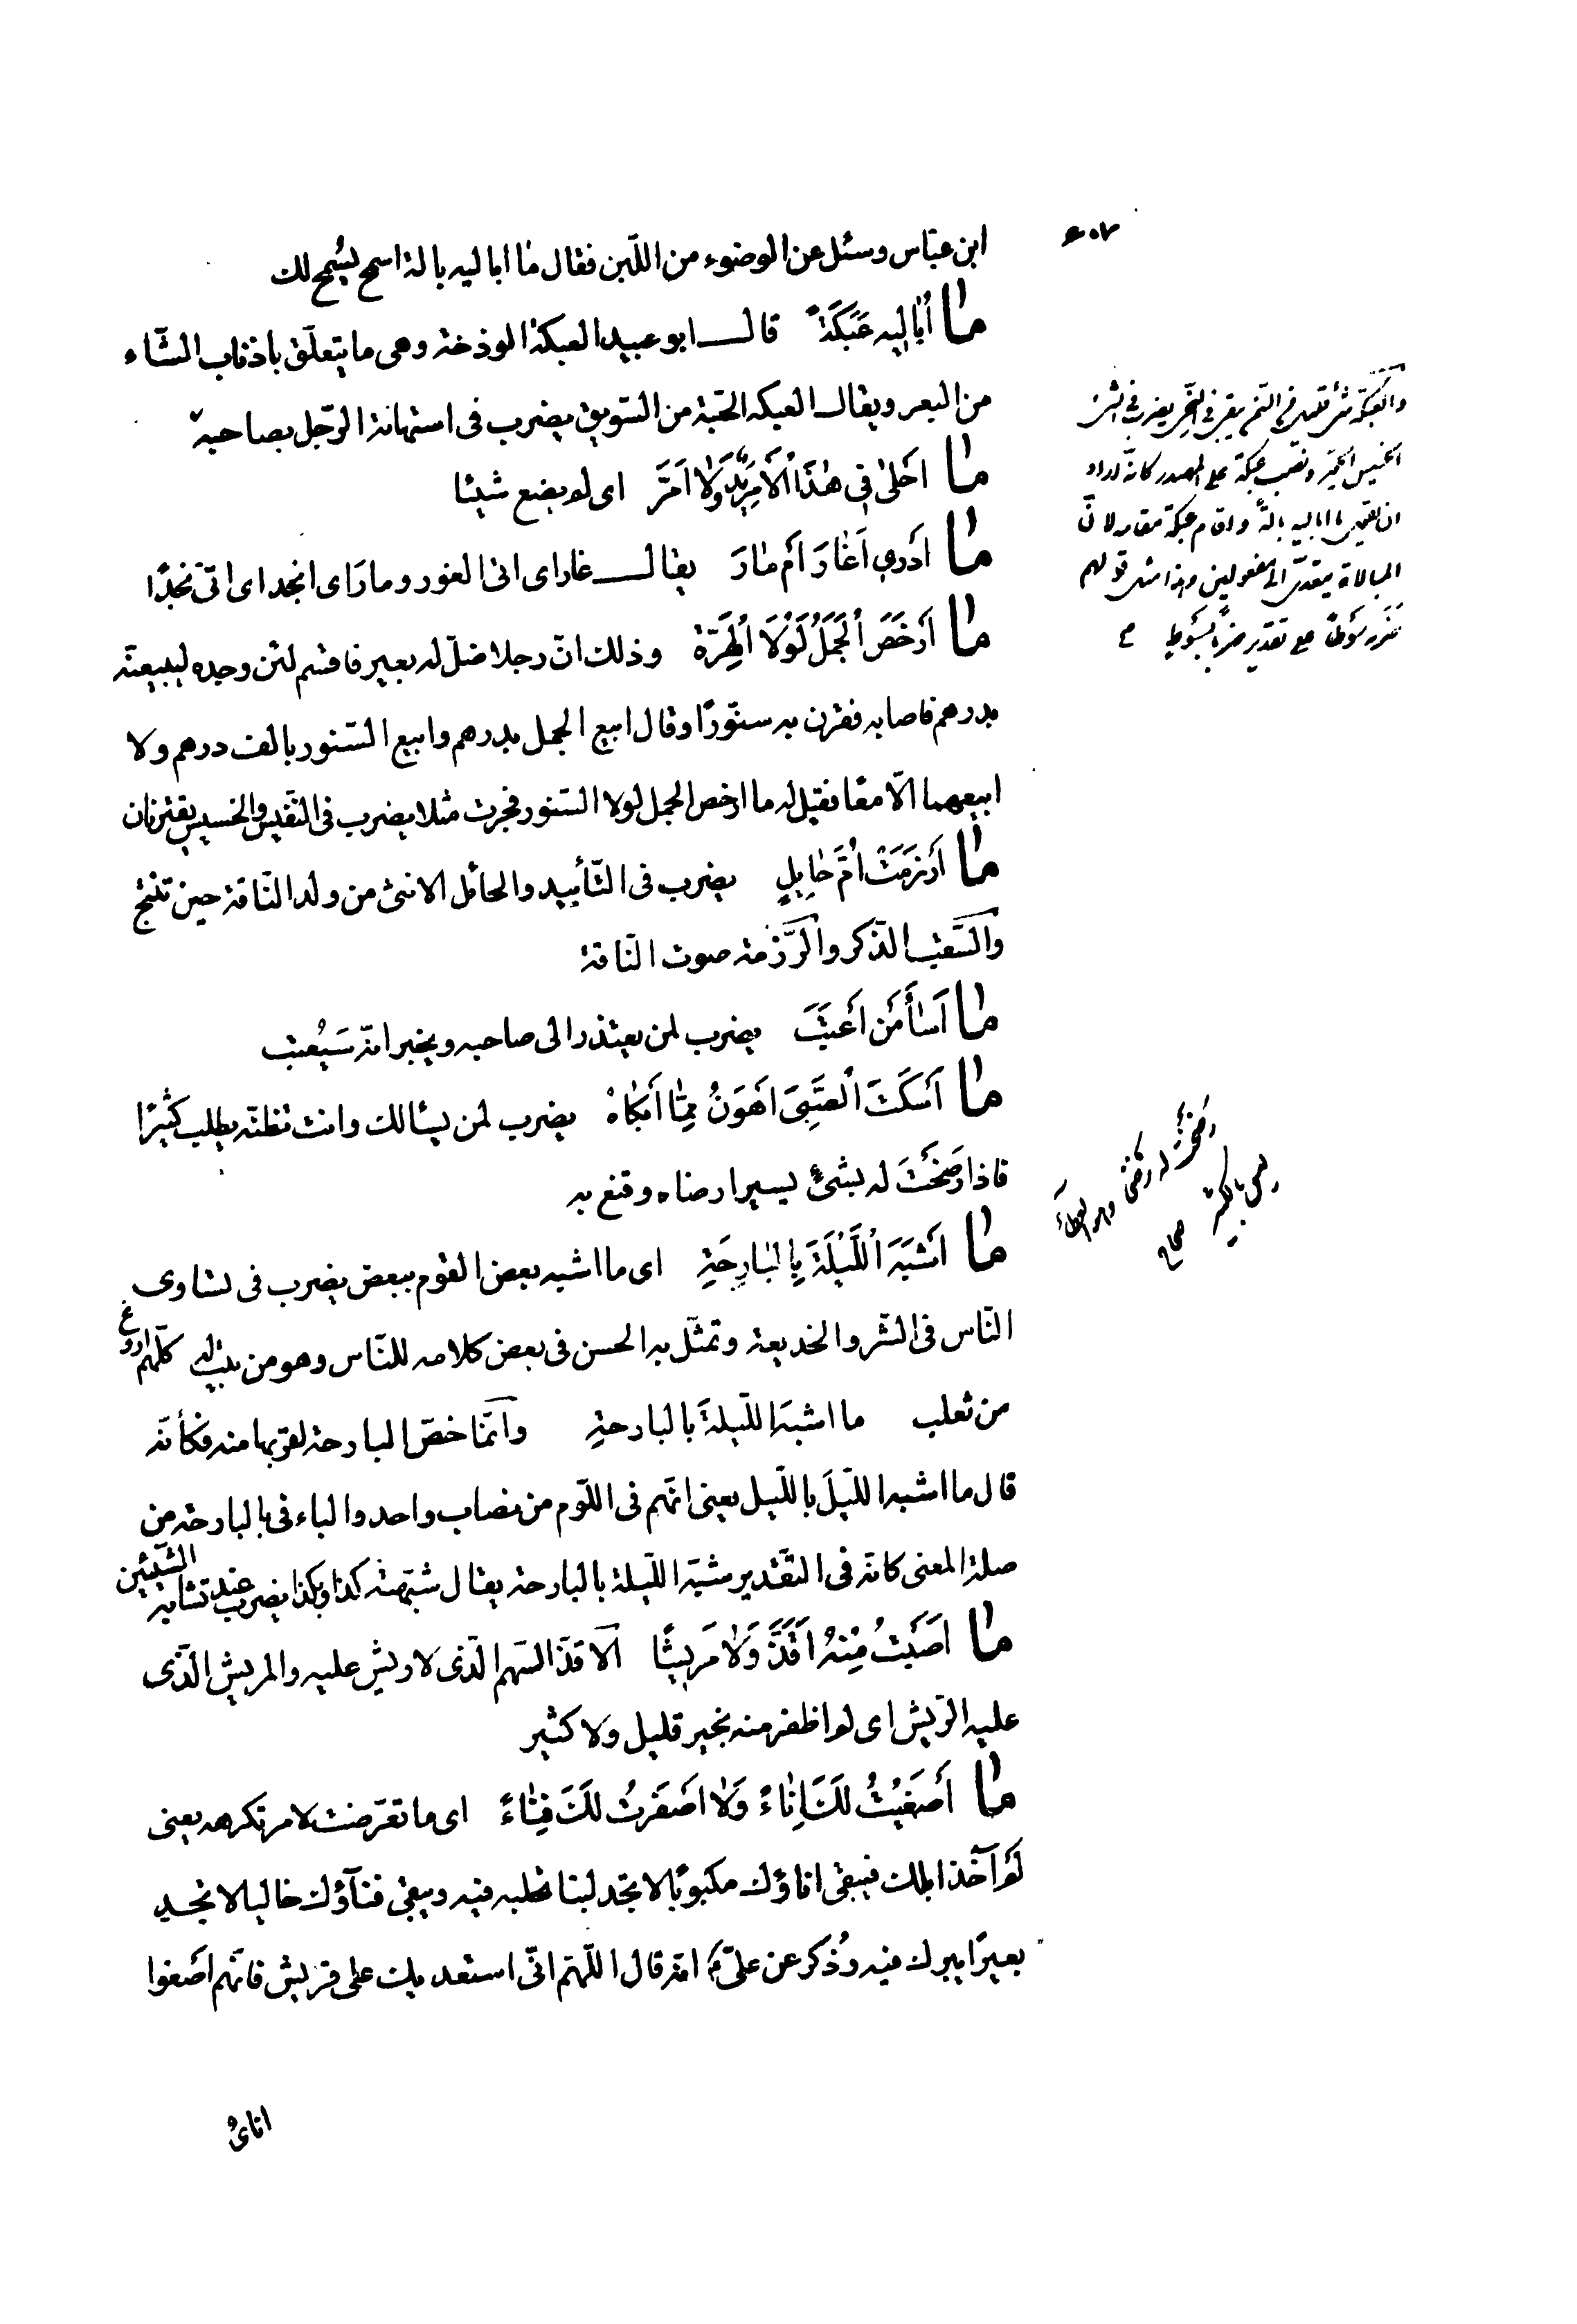 ابن عبّاس وسئل عن الوضوء من اللّبن فقال ما اباليه بالة اسمح يُسمح لك
ما أُبَالِيهِ عَبَكَةً قال ابو عبيد العبكة الوذحة وهى ما يتعلّق باذناب الشّاء
من البعر ويقال العبكه الحبّة من السّويق يضرب فى استهانة الرّجل بصاحبه
ما اَحْلىٰ فى هٰذَا الْاَمْرِ وَلَا اَمَرَّ اى لم يضع شيئا
ما اَدْرِي اَغَارَ اَمْ مَارَ يقال غار اى اتى الغور ومارَ اى انجد اى اتى نجدًا
ما اَرْخَصَ الْجَمَلَ لَوْلَا الْهِرَّةُ وذلك انّ رجلا ضلّ له بعير فاقسم لئن وجده ليبيعنّه
بدرهم فاصابه فقرن به سنّورًا وقال ابيع الجمل بدرهم وابيع السّنور بالف درهم ولا
ابيعهما الّا معًا فقيل له ما ارخص الجمل لولا السّنور فجرت مثلا يضرب فى النّفيس والخسيس يقترنان
ما اَرْزَمَتْ اُمُّ حَايِلٍ يضرب فى التّأبيد والحائل الانثى من ولد النّاقة حين تنتج
والسَّقْب الذّكر والرَّزَمة صوت النّاقة
ما اَسَاءَ مَنْ اَعْتَبَ يضرب لمن يعتذر الى صاحبه ويخبر انّه سَيُعتب
ما اَسْكَتَ الصَّبِىَّ اَهْوَنُ مِمَّا اَبْكَاهُ يضرب لمن يسالك وانت تظنّه يطلب كثيرًا
فاذا رَضَخْتَ له بشئٍ يسير ارضاه وقنع به
ما اَشْبَهَ اللَّيْلَةَ بِالْبَارِحَةِ اى ما اشبه بعض القوم ببعض يضرب فى تساوى
النّاس فى الشّر والخديعة وتمثّل به الحسن فى بعض كلامه للنّاس وهو من بيت كلّهم اروغ
من ثعلب ما اشبهَ اللّيلةَ بالبارحةِ وانّما خصّ البارحة لقربها منه فكأنّه
قال ما اشبه اللّيلَ باللّيل يعنى انّهم فى اللّوم من نصاب واحد والباء فى بالبارحة من
صلة المعنى كانّه فى التّقدير مشبّه اللّيلة بالبارحة يقال شبّهته كذا وبكذا يضرب عند تشابه الشّيئين
ما اَصَبْتُ مِنْهُ اَقَذَّ وَلَا مَرِيشًا الاقذّ السّهم الّذى لا ريش عليه والمريش الّذى
عليه الرّيش اى لم اظفر منه بخير قليل ولا كثير
ما اَصْغَيْتُ لَكَ اِنَاءً وَلَا اَصْفَرْتُ لَكَ فِنَاءً اى ما تعرّضت لامر تكرهه يعنى
لم آخذ ابلك فيبقى اناؤك مكبوبًا لا تجد لبنا تحلبه فيه ويبقى فناؤك خاليا لا تجد
بعيرًا يبرك فيه وذُكر عن علىّ انّه قال اللّهم انّى استعديك على قريش فانّهم اصغوا
انائ
والعبكة
اى خسيس الحقير ونصب عبكة على المصدر كانّه اراد
ان يقول ما اباليه بالةً واقام عبكة مقامه لانّ
المبالاة يتعدّى الى مفعولين وهذا مثل قولهم
ضربه سَوطًا على تقدير ضربًا بسوط
رضخت له رضخًا وهو العطاء
ليس بالكثير صحاح